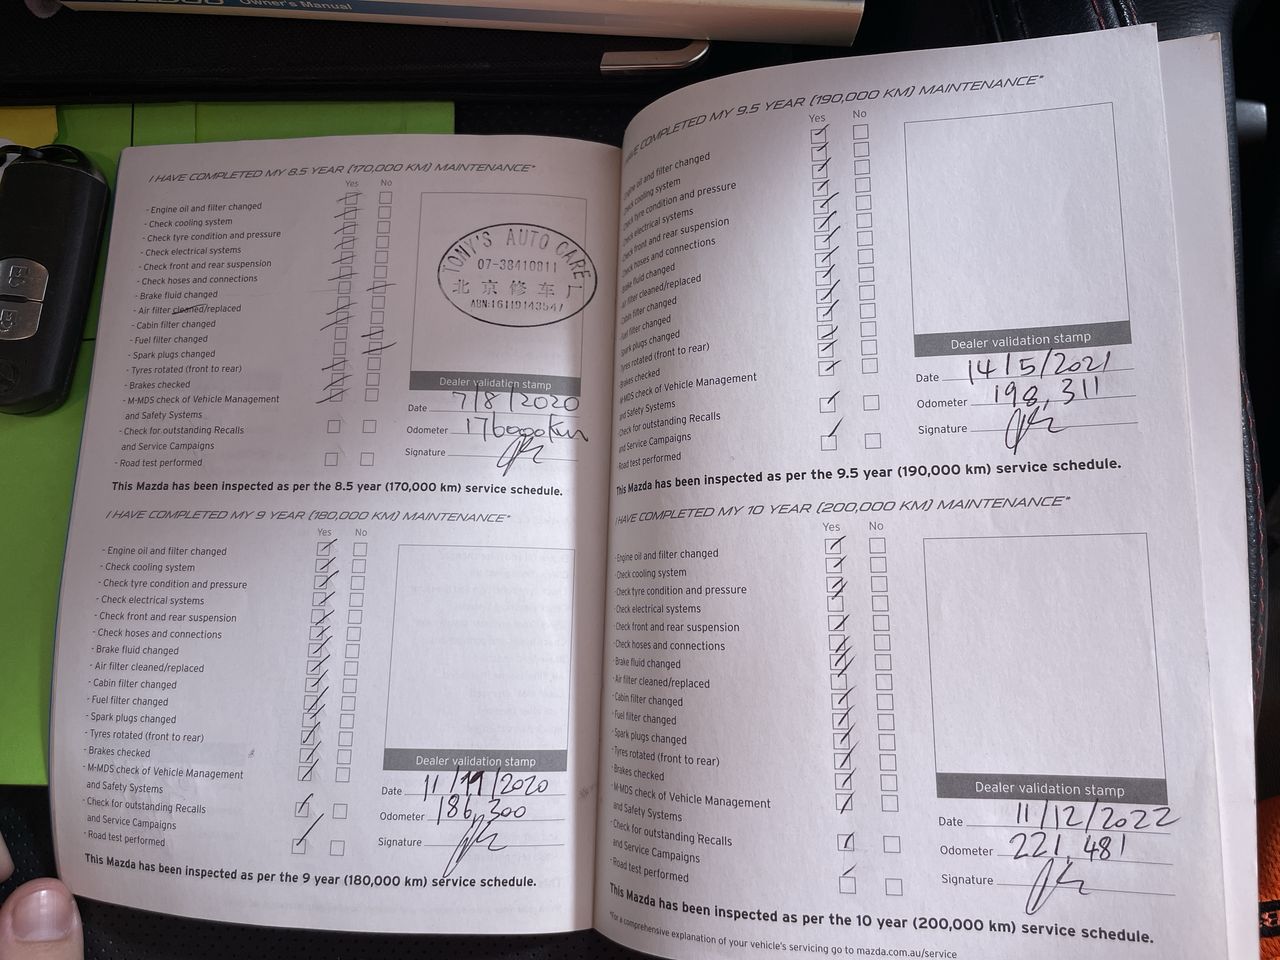 Owner's Manual
I HAVE COMPLETED MY 8.5 YEAR (170,000 KM) MAINTENANCE*
Yes No
- Engine oil and filter changed
- Check cooling system
- Check tyre condition and pressure
- Check electrical systems
- Check front and rear suspension
- Check hoses and connections
- Brake fluid changed
- Air filter cleaned/replaced
- Cabin filter changed
- Fuel filter changed
- Spark plugs changed
- Tyres rotated (front to rear)
- Brakes checked
- M-MDS check of Vehicle Management
and Safety Systems
- Check for outstanding Recalls
and Service Campaigns
- Road test performed
TONY'S AUTO CARE
07-38410811
北京修车厂
ABN:16119143547
Dealer validation stamp
Date 7/8/2020
Odometer 176000Km
Signature
This Mazda has been inspected as per the 8.5 year (170,000 km) service schedule.
I HAVE COMPLETED MY 9 YEAR (180,000 KM) MAINTENANCE*
Yes No
- Engine oil and filter changed
- Check cooling system
- Check tyre condition and pressure
- Check electrical systems
- Check front and rear suspension
- Check hoses and connections
- Brake fluid changed
- Air filter cleaned/replaced
- Cabin filter changed
- Fuel filter changed
- Spark plugs changed
- Tyres rotated (front to rear)
- Brakes checked
- M-MDS check of Vehicle Management
and Safety Systems
- Check for outstanding Recalls
and Service Campaigns
- Road test performed
Dealer validation stamp
Date 11/11/2020
Odometer 186,300
Signature
This Mazda has been inspected as per the 9 year (180,000 km) service schedule.
HAVE COMPLETED MY 9.5 YEAR (190,000 KM) MAINTENANCE*
Yes No
Engine oil and filter changed
Check cooling system
Check tyre condition and pressure
Check electrical systems
Check front and rear suspension
Check hoses and connections
Brake fluid changed
Air filter cleaned/replaced
Cabin filter changed
Fuel filter changed
Spark plugs changed
Tyres rotated (front to rear)
Brakes checked
M-MDS check of Vehicle Management
and Safety Systems
Check for outstanding Recalls
and Service Campaigns
Road test performed
Dealer validation stamp
Date 14/5/2021
Odometer 198,311
Signature
This Mazda has been inspected as per the 9.5 year (190,000 km) service schedule.
I HAVE COMPLETED MY 10 YEAR (200,000 KM) MAINTENANCE*
Yes No
- Engine oil and filter changed
- Check cooling system
- Check tyre condition and pressure
- Check electrical systems
- Check front and rear suspension
- Check hoses and connections
- Brake fluid changed
- Air filter cleaned/replaced
- Cabin filter changed
- Fuel filter changed
- Spark plugs changed
- Tyres rotated (front to rear)
- Brakes checked
- M-MDS check of Vehicle Management
and Safety Systems
- Check for outstanding Recalls
and Service Campaigns
- Road test performed
Dealer validation stamp
Date 11/12/2022
Odometer 221,481
Signature
This Mazda has been inspected as per the 10 year (200,000 km) service schedule.
*For a comprehensive explanation of your vehicle's servicing go to mazda.com.au/service